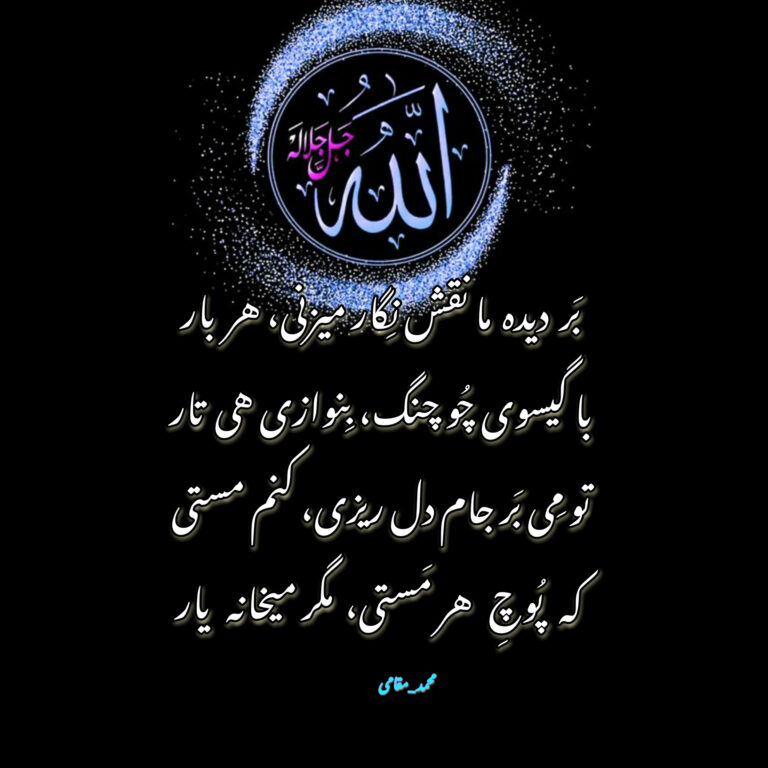 الله
جَلَّ جَلالَه
بَر دیده ما نقش نِگار میزنی، هر بار
با گیسوی چُو چنگ، بِنوازی هی تار
تو مِی بَر جام دل ریزی، کنم مستی
که پُوچِ هر مَستی، مگر میخانه یار
محمد_مقامی